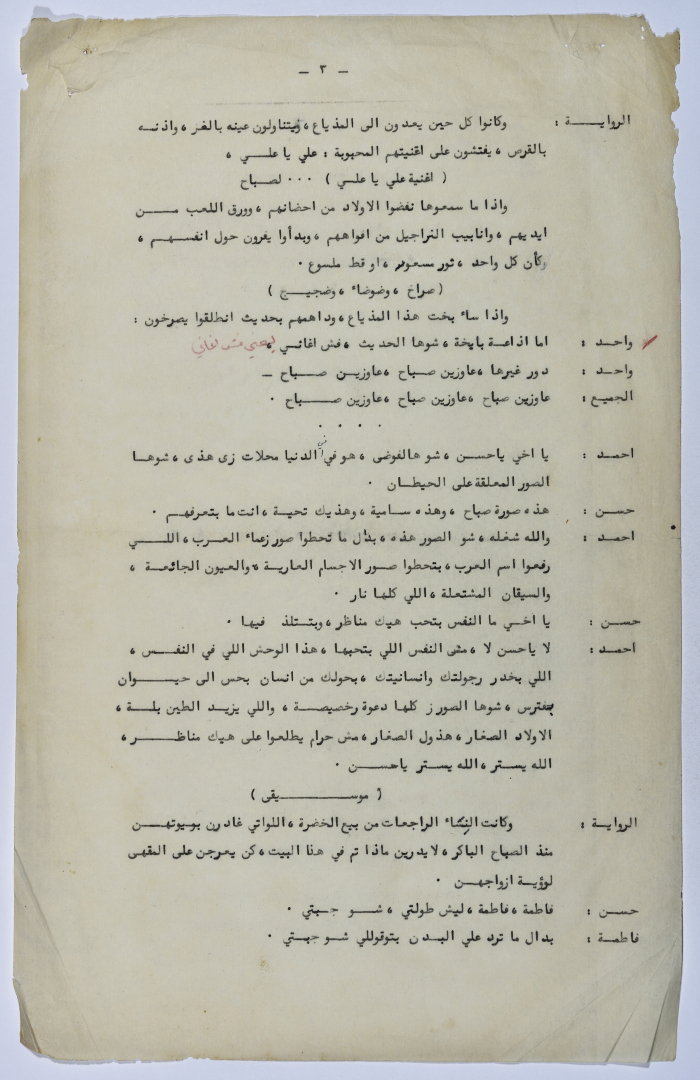 — ٣ —
الروايـــة : وكانوا كل حين يعدون الى المذياع ، ويتناولون عينه بالغز ، واذنـه
بالقرص ، يفتشون على اغنيتهم المحبوبة : علي يا علـــي ،
( اغنية علي يا علـي ) ٠٠٠ لصباح
واذا ما سمعوها نفضوا الاولاد من احضانهم ، وورق اللعب مـــن
ايديهم ، وانابيب النراجيل من افواههم ، وبدأوا يفرون حول انفســهم ،
وكأن كل واحد ، ثور مسعور ، او قط ملسوع ٠
( صراخ ، وضوضاء ، وضجيــج )
واذا ساء بخت هذا المذياع ، وداهمهم بحديث انطلقوا يصرخون :
واحـد : اما اذاعة بايخة ، شوها الحديث ، فش اغانـي ،
واحـد : دور غيرها ، عاوزين صباح ، عاوزيـن صبـاح —
الجميع : عاوزين صباح ، عاوزين صباح ، عاوزين صــــباح ٠
٠ ٠ ٠ ٠
احمـد : يا اخي ياحسـن ، شو هالفوضى ، هو في الدنيا محلات زى هذى ، شوهـا
الصور المعلقة على الحيطـان ٠
حسـن : هذه صورة صباح ، وهذه ساميـة ، وهذيك تحيـة ، انت ما بتعرفهـم ٠
احمـد : والله شغله ، شو الصور هذه ، بدال ما تحطوا صور زعماء العـرب ، اللــي
رفعوا اسم العرب ، بتحطوا صور الاجسام العاريـة ، والعيون الجائعـة ،
والسيقان المشتعلة ، اللي كلها نار ٠
حسـن : يا اخـي ما النفس بتحب هيـك مناظر ، وبتـتلذ فيهـا ٠
احمـد : لا ياحسن لا ، مش النفس اللي بتحبها ، هذا الوحش اللي في النفــس ،
اللي بخدر رجولتك وانسانيتك ، بحولك من انسان بحس الى حيــوان
بفترس ، شوها الصور ز كلها دعوة رخصيصـة ، واللي يزيـد الطين بلــة ،
الاولاد الصغار ، هذول الصغار ، مش حرام يطلعوا على هيك مناظـــر ،
الله يستـر ، الله يستر ياحســن ٠
( موســـــيقى )
الروايـة : وكانت النساء الراجعات من بيع الخضرة ، اللواتي غادرن بوبيوتهـــن
منذ الصباح الباكر ، لايدرين ماذا تم في هذا البيت ، كن يعرجن على المقهى
لرؤيـة ازواجهـن ٠
حسـن : فاطمة ، فاطمة ، ليش طولتي ، شــو جـبتي ٠
فاطمـة : بدال ما ترد علي البـدن بتوقوللي شـو جبـتي ٠